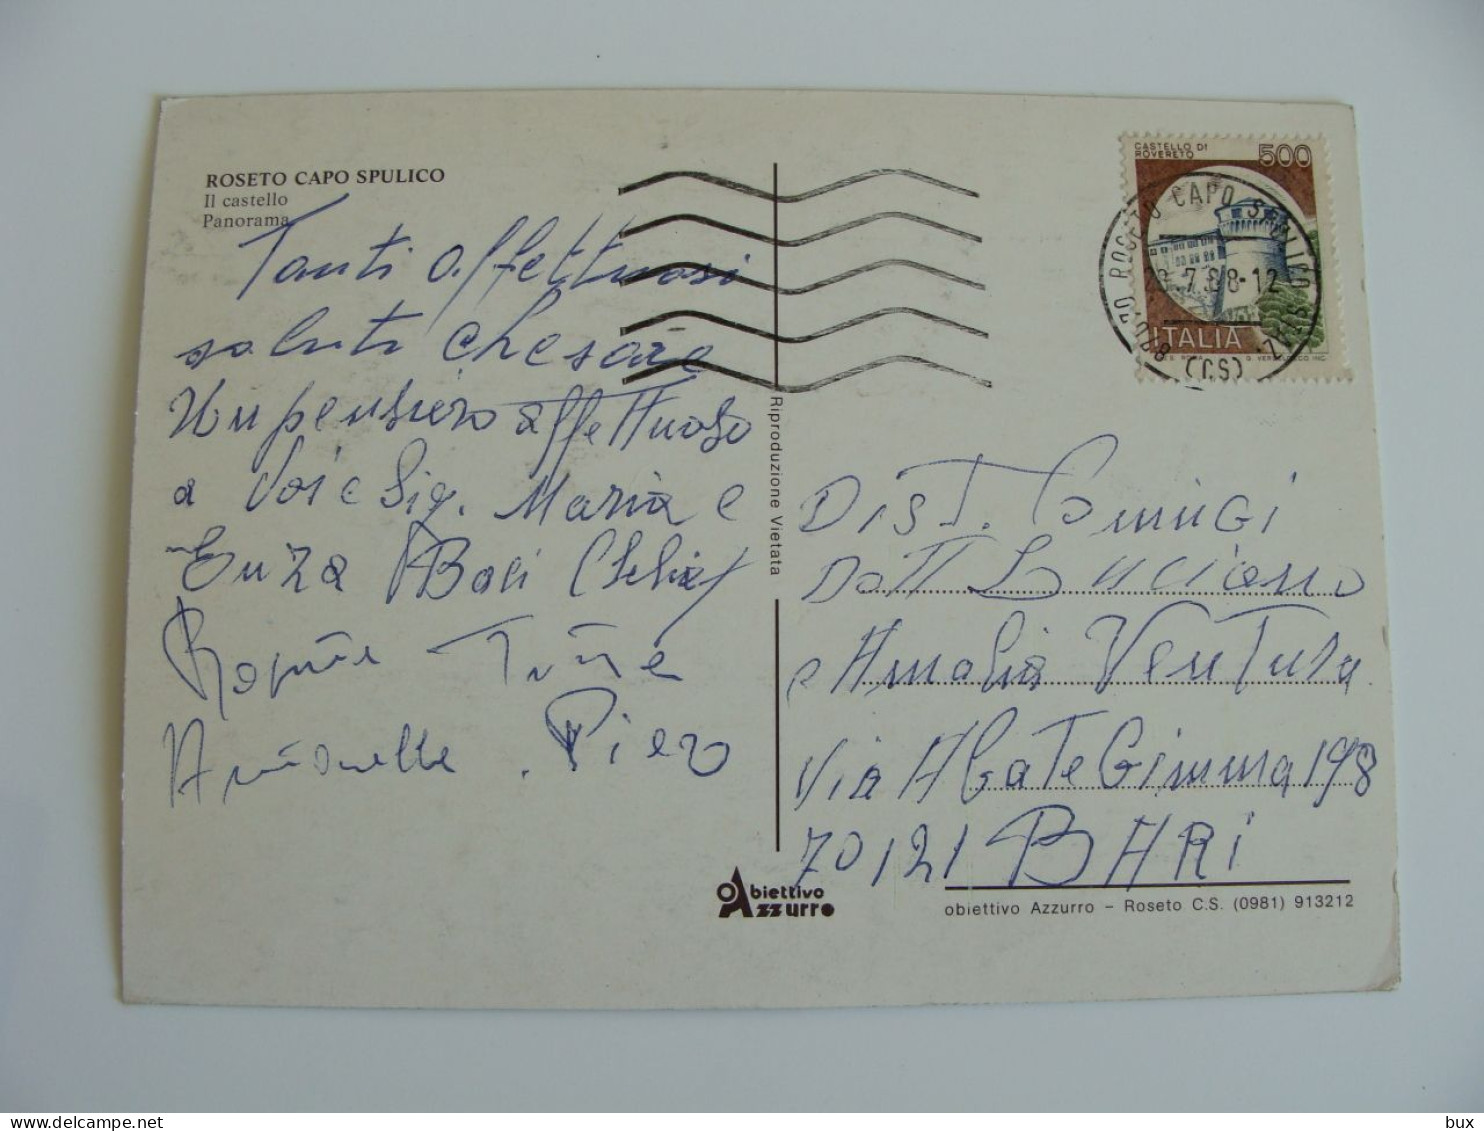 ROSETO CAPO SPULICO
Il castello
Panorama
Tanti affettuosi
saluti Chesare
Un pensiero affettuoso
a Voi e Sig. Maria e
Enza Baci Clelia
Tina
Antonella . Piero
Riproduzione Vietata
Obiettivo
Azzurro
CASTELLO DI
ROVERETO
500
ITALIA
ROSETO CAPO SPULICO
.7.88-12
(CS)
Dist.
Dott Luciano
e Amalia Ventura
Via Abate Gimma 198
70121 BARI
obiettivo Azzurro – Roseto C.S. (0981) 913212
bux